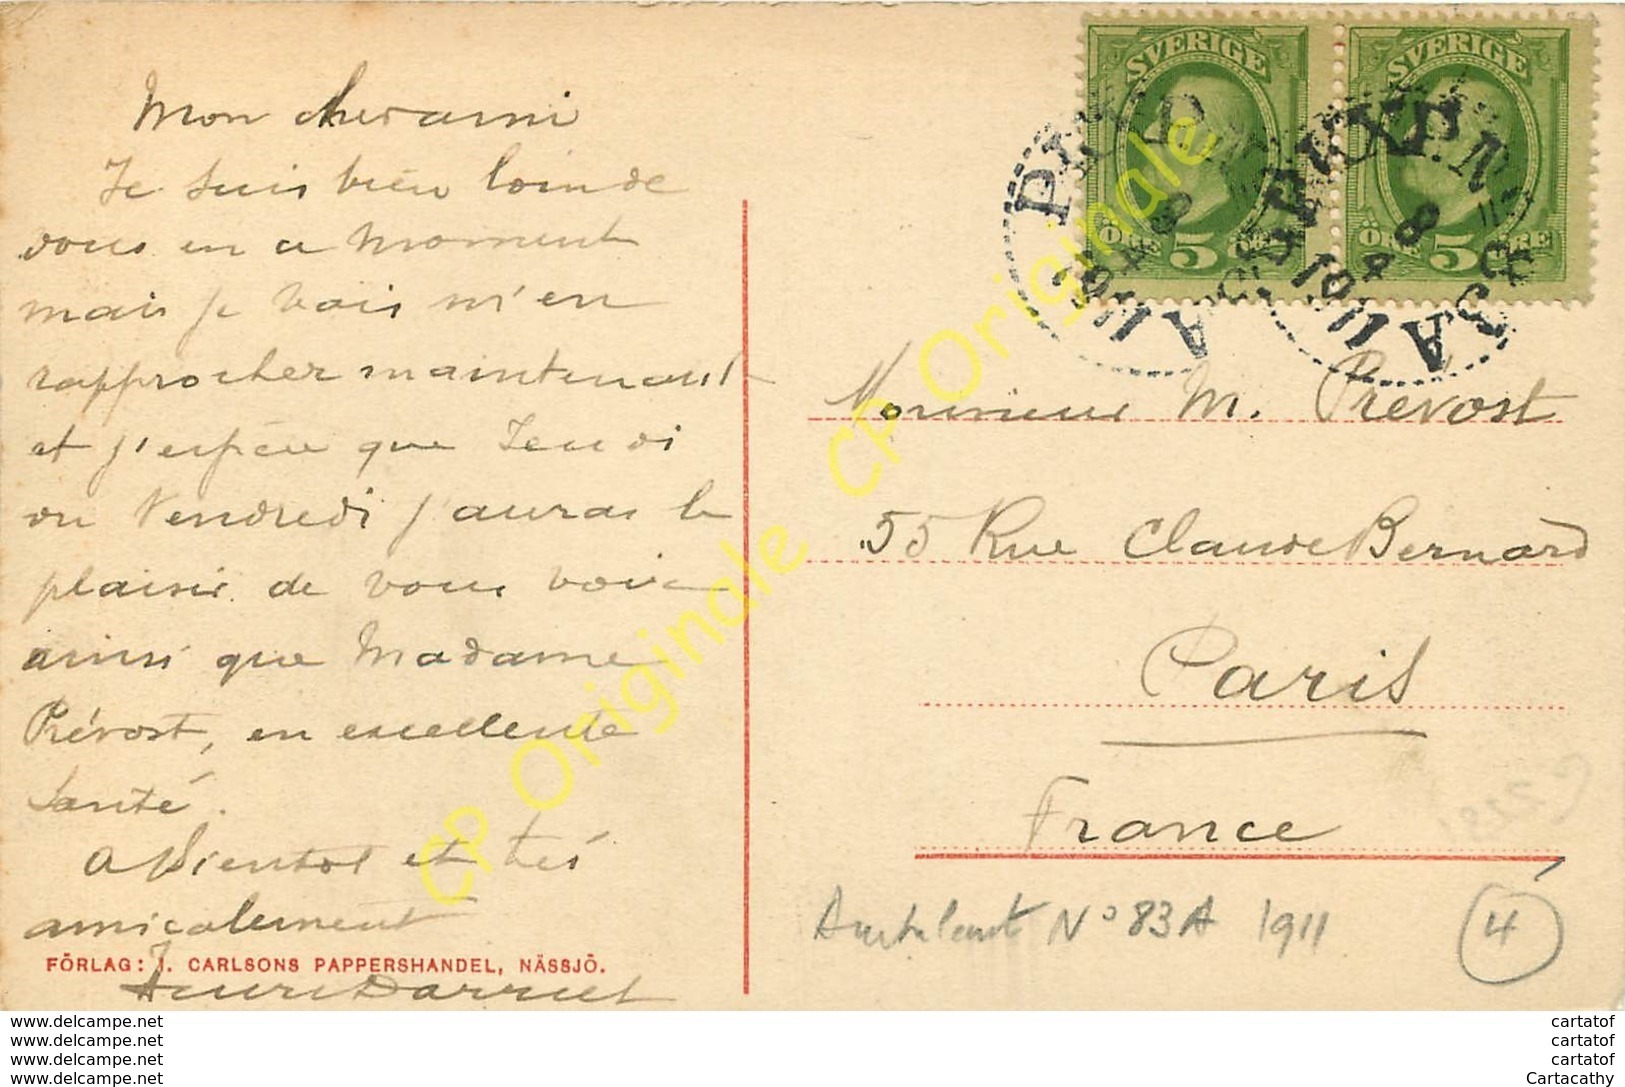 Mon cher ami
Je suis bien loin de
vous en ce moment
mais je vais m'en
rapprocher maintenant
et j'espère que Jeudi
ou Vendredi j'aurai le
plaisir de vous voir
ainsi que Madame
Prévost, en excellente
Santé.
A bientot et très
amicalement
FÖRLAG: J. CARLSONS PAPPERSHANDEL, NÄSSJÖ.
SVERIGE
SVERIGE
ÖRE 5 ÖRE
ÖRE 5 ÖRE
PKXP. N:o 83 A
8 4 1911
Monsieur M. Prévost
55 Rue Claude Bernard
Paris
France
Ambulant N° 83A 1911
4
CP Originale CP Originale CP Originale
www.delcampe.net
www.delcampe.net
www.delcampe.net
www.delcampe.net
cartatof
cartatof
cartatof
Cartacathy